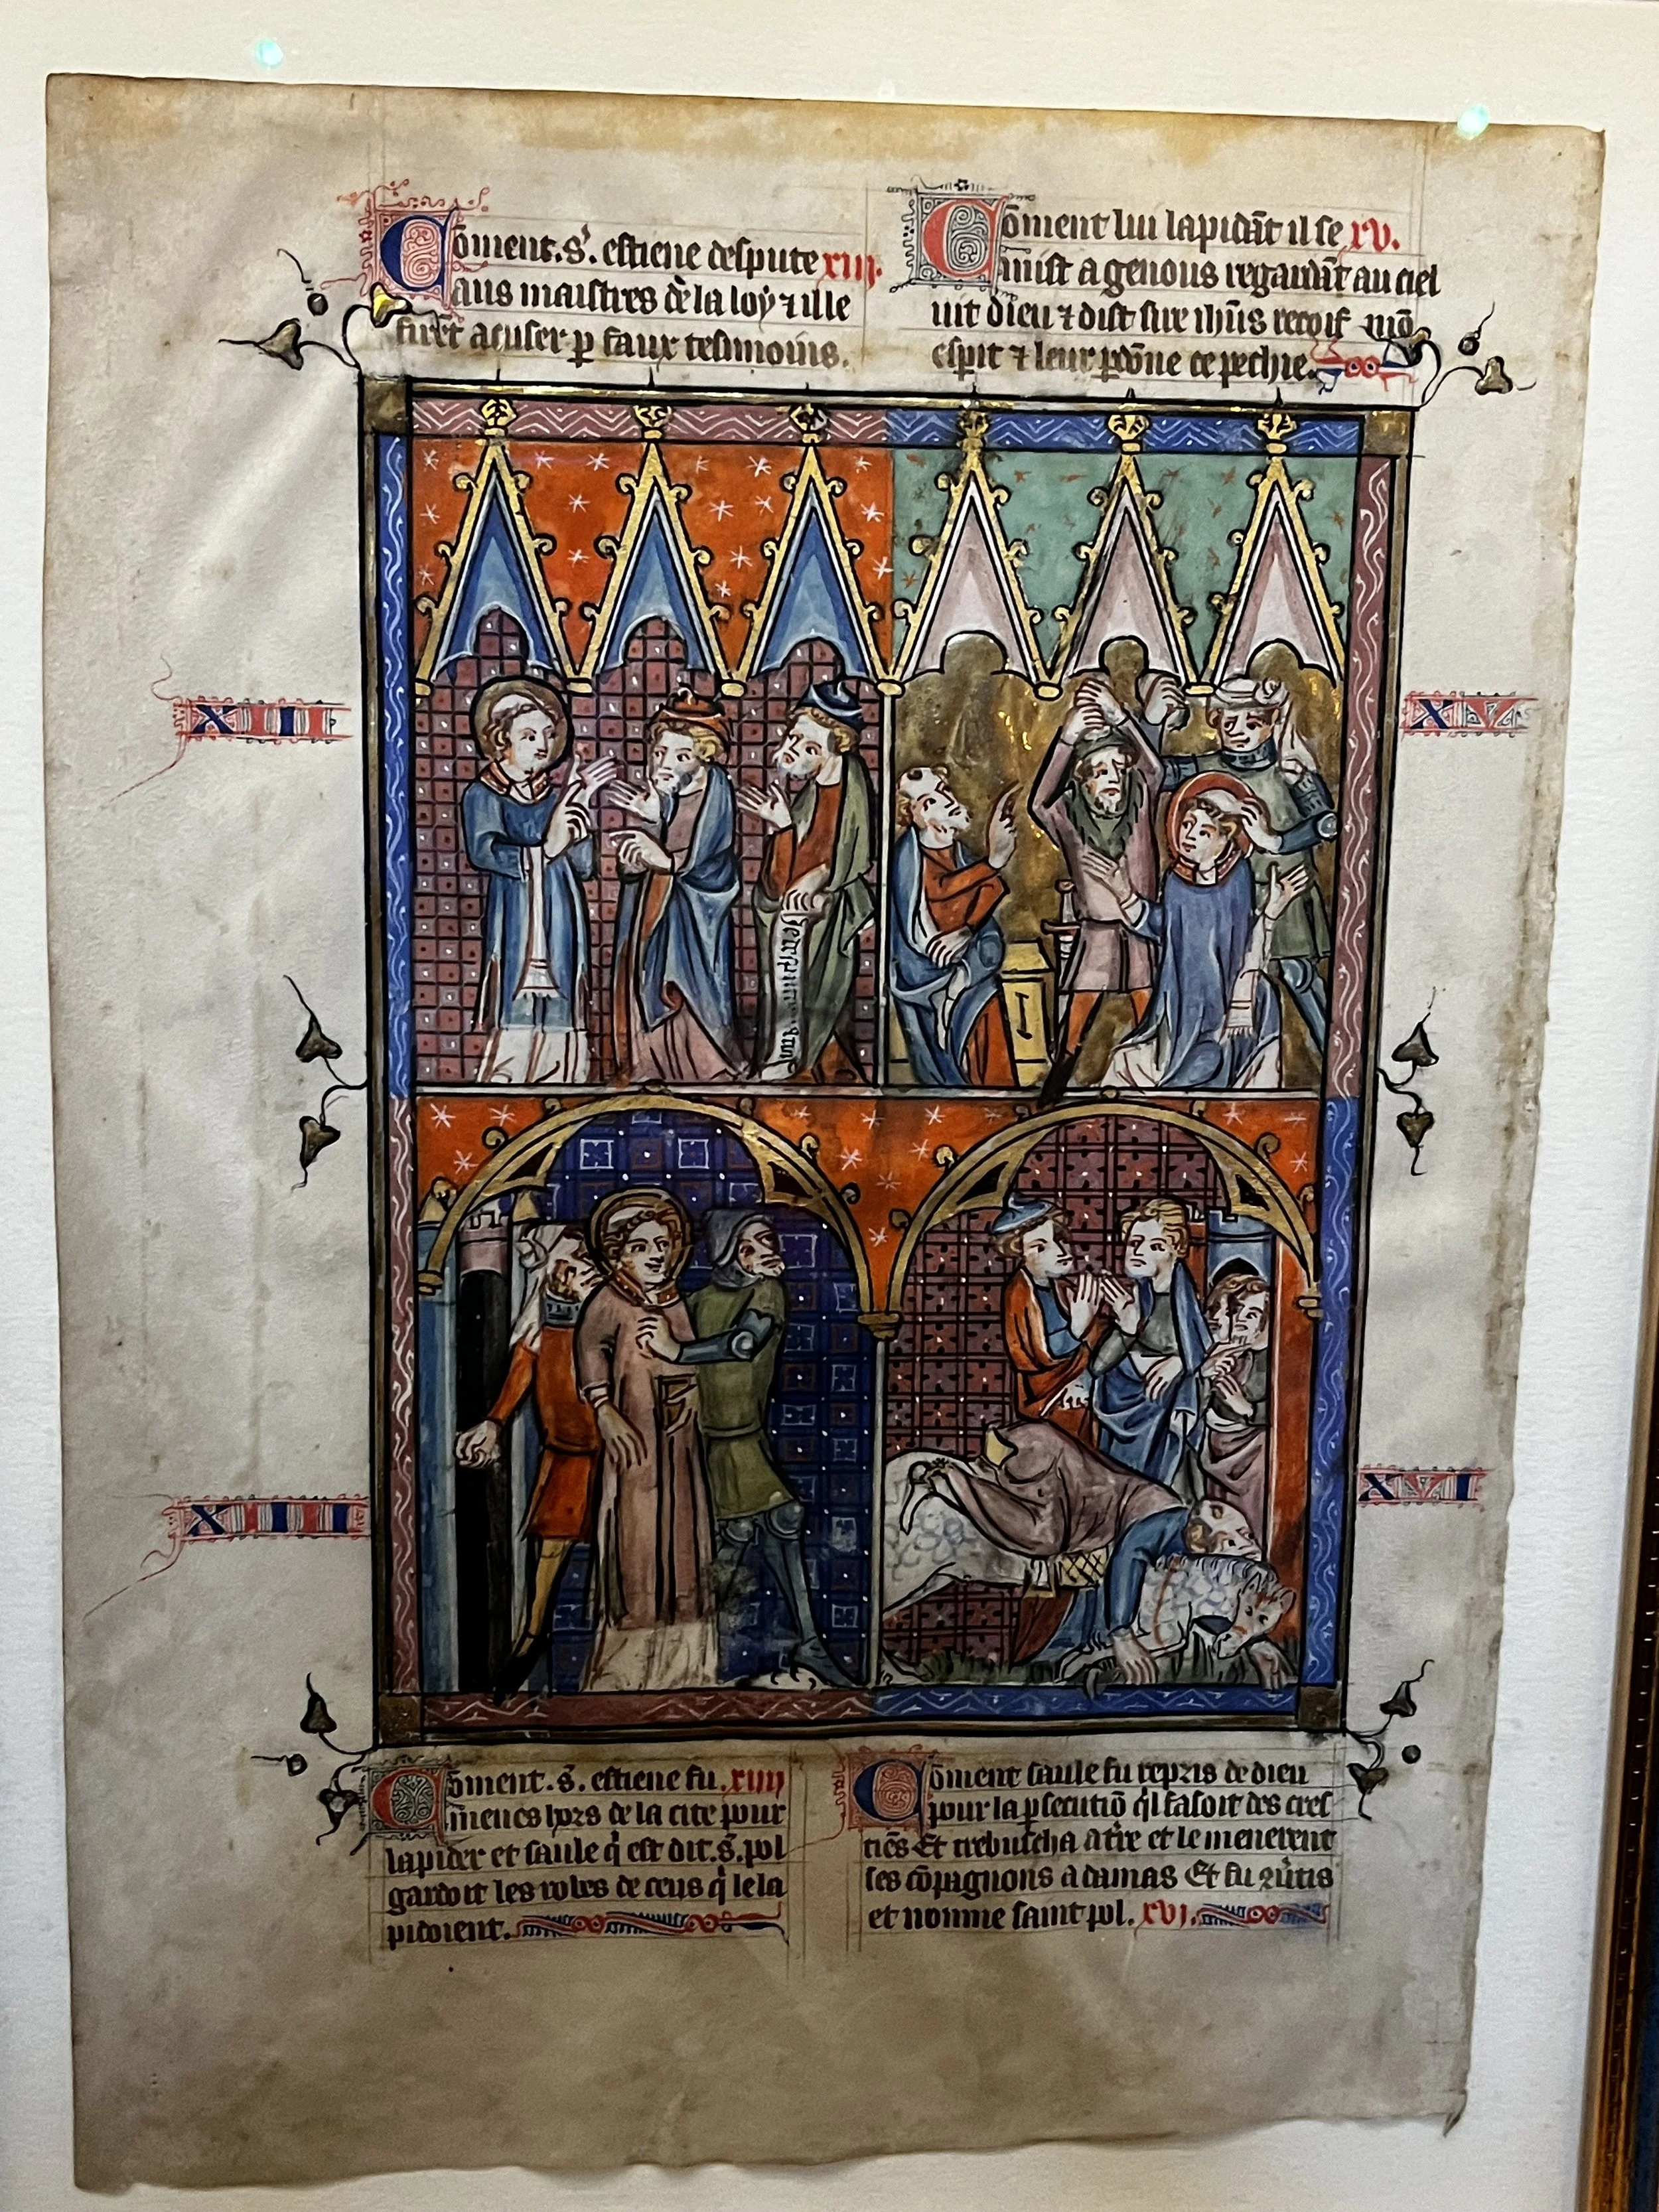 Cōment. S'. estiene despute xiii.
aus maistres de la loy ⁊ ille
firēt acuser p faux tesmoins.
Cōment lui lapidāt il se xv.
mist a genous regardāt au ciel
uit dieu ⁊ dist sire ihūs recoif mō
espit ⁊ leur pdōne ce pechie.
XIII
XV
XIIII
XVI
Cōment. S'. estiene fu. xiiii
menes hors de la cite pour
lapider et saule q̄ est dit. S'. pol
gardoit les robes de ceus q̄ le la
pidoient.
Cōment saule fu repris de dieu
pour la psecutiō q̄l fasoit des cres
tiēs Et trebuscha a tʳre et le menerent
ses cōpagnons a damas Et fu ꝯūtis
et nomme saint pol. xvi.